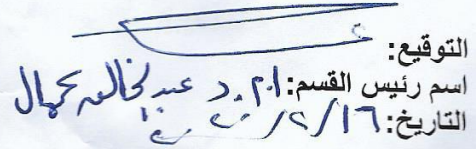 التوقيع:
اسم رئيس القسم: ا.م.د عبدالخالق
التاريخ: ١٦/٢/